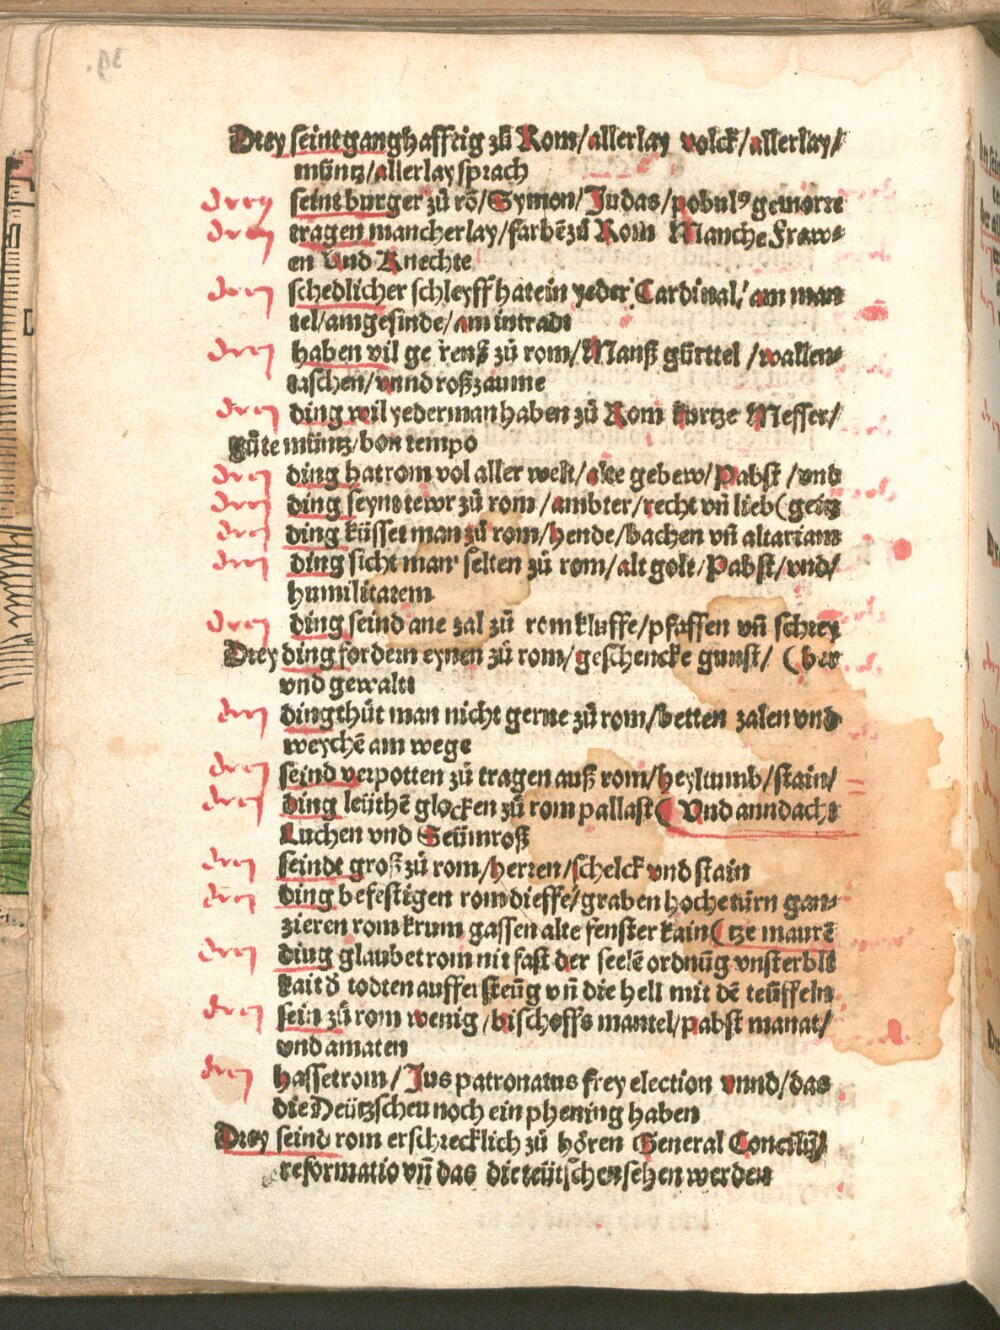 Drey seint ganghafftig zů Rom/allerlay volck/allerlay/
můntz/allerlay sprach
drey seint burger zů rō/Symon/Judas/pobulꝰ gemorre
drey tragen mancherlay/farbē zů Rom Manche Fraw⸗
en Vnd Knechte
drey schedlicher schleyff hat ein yeder Cardinal/am man
tel/am gesinde/am intradt
drey haben vil ge renß zů rom/Manß gürttel/wallen⸗
taschen/vnnd roßzaume
drey ding wil yederman haben zů Rom kurtze Messer/
gůte müntz/bon tempo
drey ding hat rom vol aller welt/alte gebew/Pabst/vnd
drey ding seynt tewr zů rom/ambter/recht vñ lieb (geitz
drey ding küsset man zů rom/hende/bachen vñ altarians
drey ding sicht man selten zů rom/alt golt/Pabst/vnd/
humilitatem
drey ding seind ane zal zů rom kluffe/pfaffen vñ schrey
Drey ding fordern eynen zů rom/geschencke gunst/ (ber
vnd gewalt
drey ding thůt man nicht gerne zů rom/betten zalen vnd
weychē am wege
drey seind verpotten zů tragen auß rom/heyltumb/stain/
drey ding leüthē glocken zů rom pallast (Vnd anndacht
Luchen vnd Seümroß
drey seindt groß zů rom/herren/schelck vnd stain
drey ding befestigen rom dieffe/graben hoche türn gan⸗
zieren rom krum gassen alte fenster kain (tze maurē
drey ding glaubet rom nit fast der seelē ordnūg vnsterbli
kait d̄ todten auffersteūg vñ die hell mit dē teüffeln
drey sein zů rom wenig/bischoffs mantel/pabst manat/
vnd amaten
drey hasset rom/Jus patronatus frey election vnnd/das
die Deützschen noch ein phening haben
Drey seind rom erschrecklich zů hören General Concilij/
reformatio vñ das die teütschen sehen werden